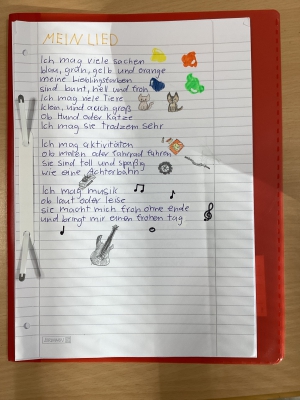 MEIN LIED
Ich mag viele sachen
blau, grün, gelb und orange
meine Lieblingsfarben
sind bunt, hell und froh
Ich mag viele Tiere
klein, und auch groß
Ob Hund oder Katze
Ich mag sie trodzem sehr
Ich mag aktivitäten
ob malen oder fahrrad fahren
Sie sind toll und spaßig
wie eine Achterbahn
Ich mag musik
ob laut oder leise
sie macht mich froh ohne ende
und bringt mir einen frohen tag